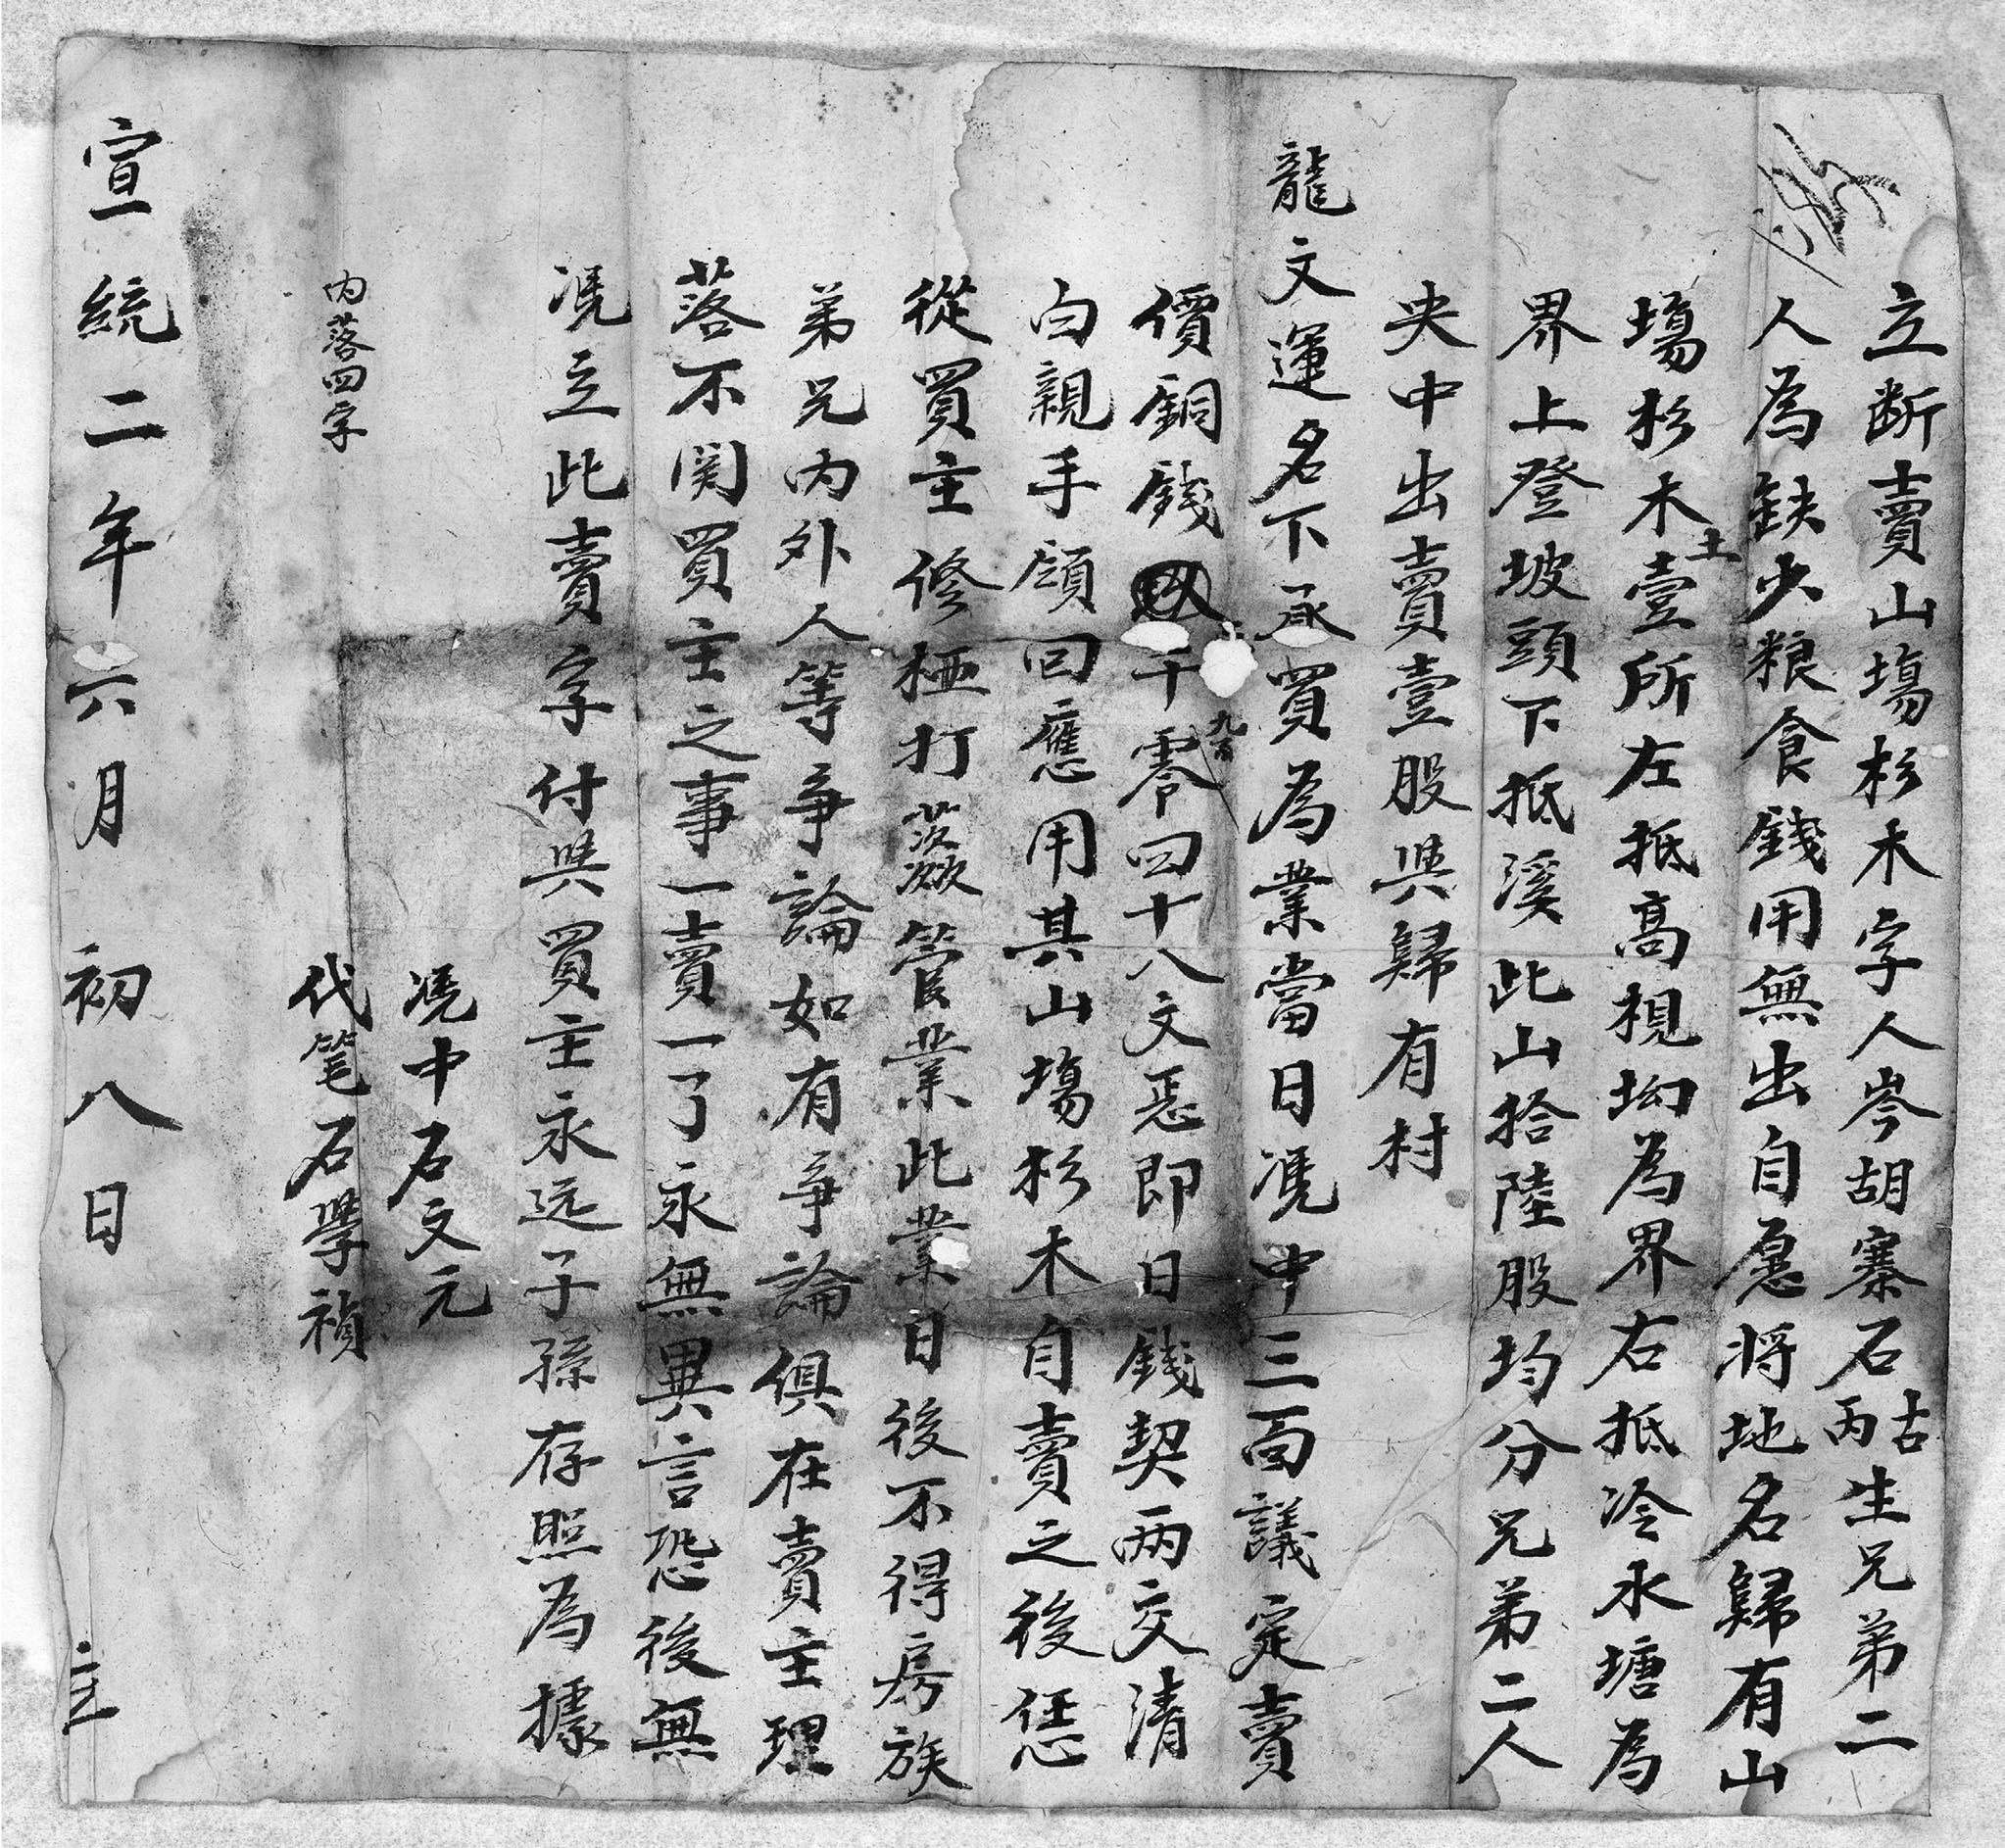 立断賣山塲杉木字人岑胡寨石古丙生兄弟二
人為缺少粮食錢用無出自愿将地名歸有山
塲杉木土壹所左抵高梘坳為界右抵冷水塘為
界上登坡頭下抵溪此山拾陸股均分兄弟二人
央中出賣壹股與歸有村
龍文運名下承買為業當日凴中三面議定賣
價銅錢千九百零四十八文恁即日錢契两交清
白親手領回應用其山塲杉木自賣之後恁
從買主修極打管業此業日後不得房族
弟兄内外人等争論如有争論俱在賣主理
落不関買主之事一賣一了永無異言恐後無
凴立此賣字付與買主永远子孫存照為據
凴中石文元
内落四字
代笔石學禎
宣統二年六月初八日 立